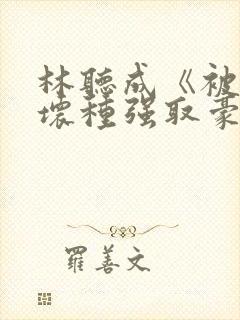 林聽成《被
壞種强取豪
羅善文